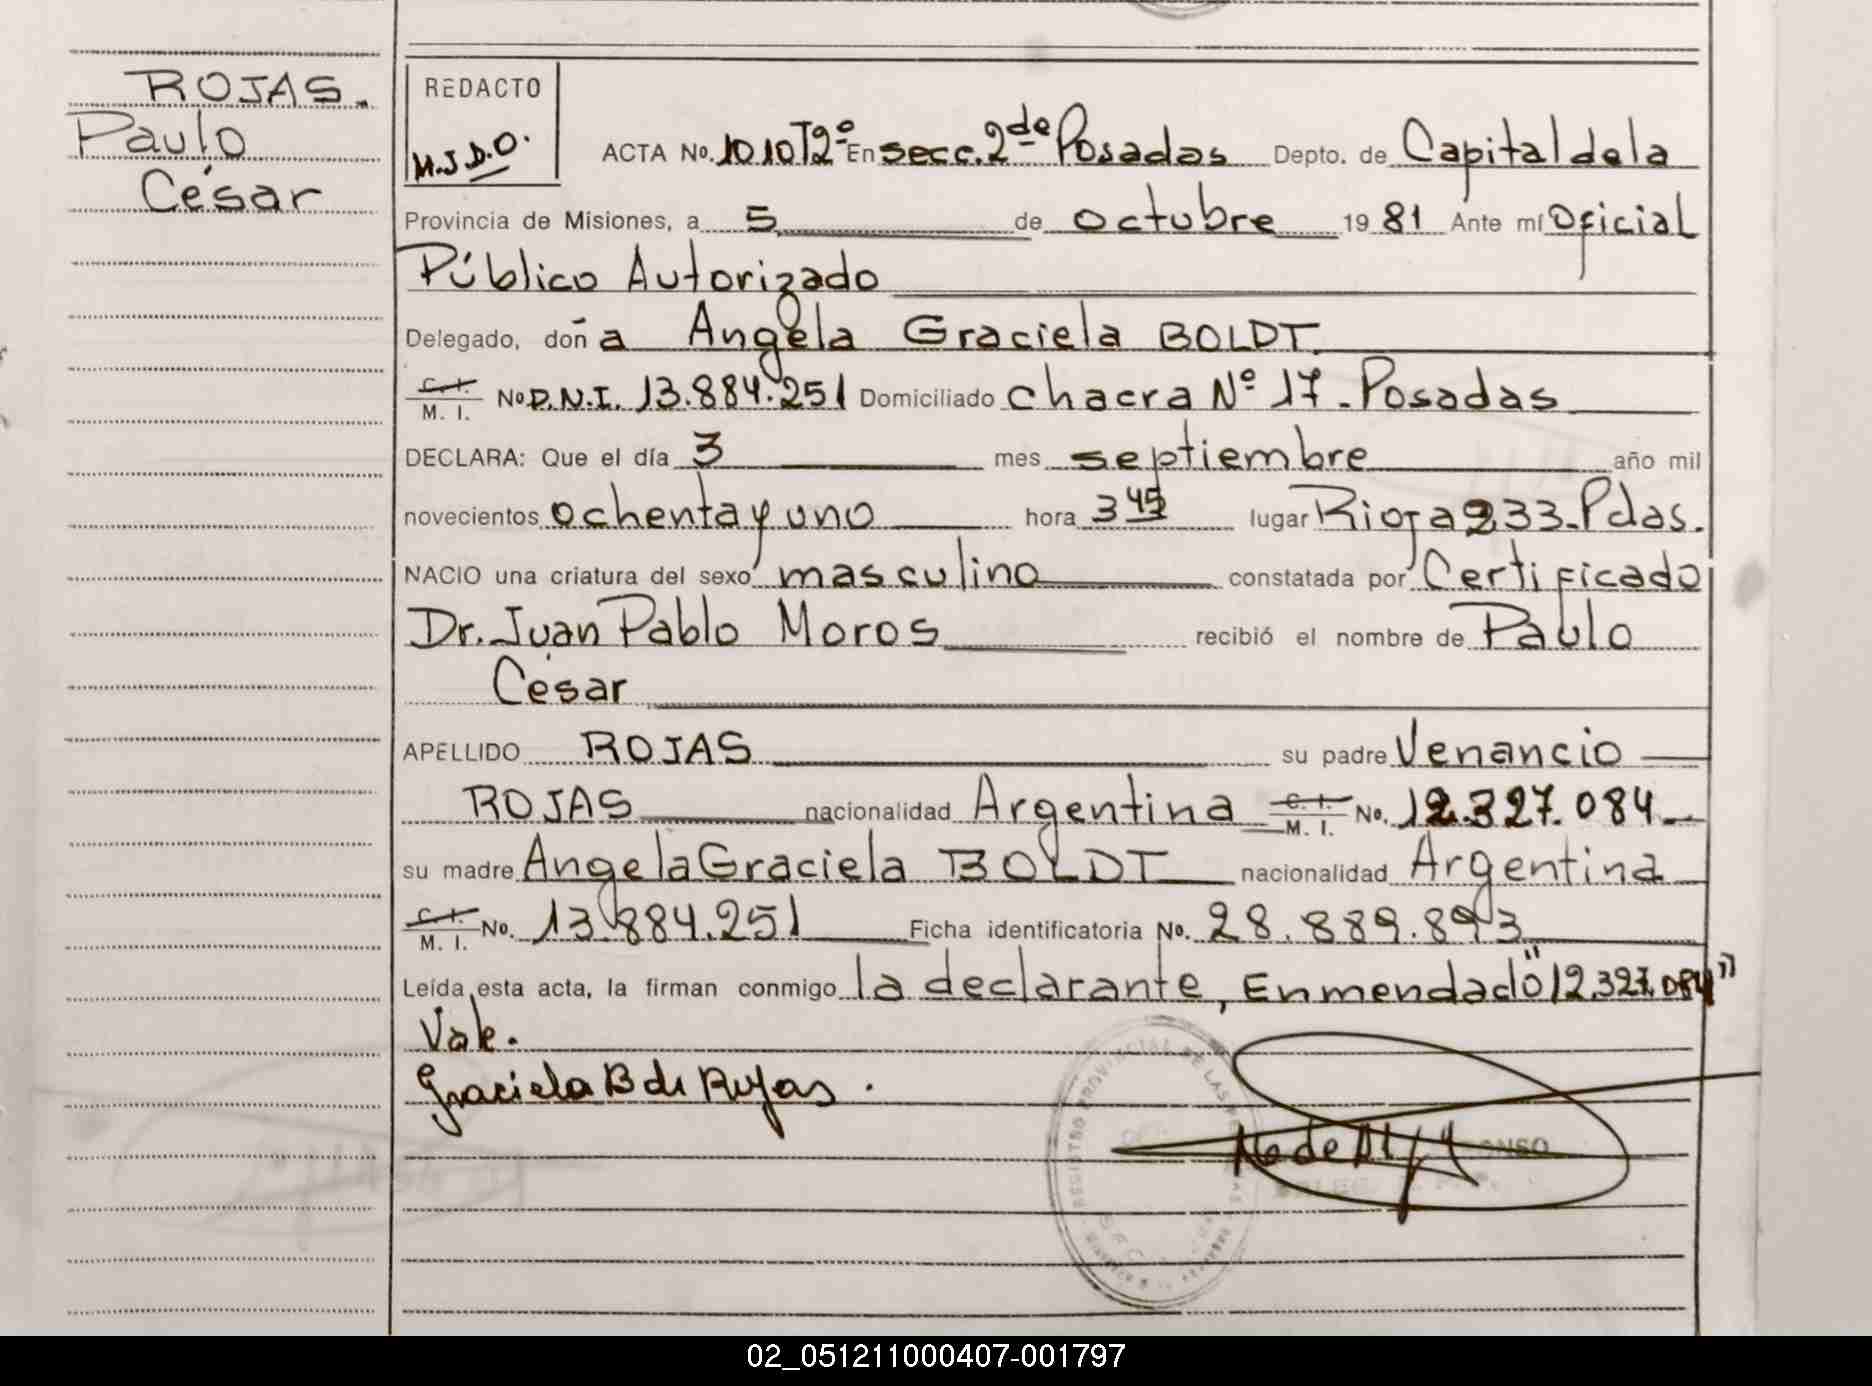 ROJAS
Paulo
César
REDACTO
M.J.D.O.
ACTA No. 1010 T2º En secc. 2da Posadas Depto. de Capital de la
Provincia de Misiones, a 5 de octubre 19 81 Ante mí Oficial
Público Autorizado
Delegado, doña Angela Graciela BOLDT
C. I. / M. I. No D.N.I. 13.884.251 Domiciliado chacra Nº 17 - Posadas
DECLARA: Que el día 3 mes septiembre año mil
novecientos ochenta y uno hora 3 45 lugar Rioja 233 - Pdas.
NACIO una criatura del sexo masculino constatada por Certificado
Dr. Juan Pablo Moros recibió el nombre de Paulo
César
APELLIDO ROJAS su padre Venancio
ROJAS nacionalidad Argentina C. I. / M. I. No. 12.327.084
su madre Angela Graciela BOLDT nacionalidad Argentina
C. I. / M. I. No. 13.884.251 Ficha identificatoria No. 28.889.893
Leída esta acta, la firman conmigo la declarante, Enmendado "12.327.084"
Vale.
Graciela B de Rojas.
REGISTRO PROVINCIAL DE LAS
02_051211000407-001797